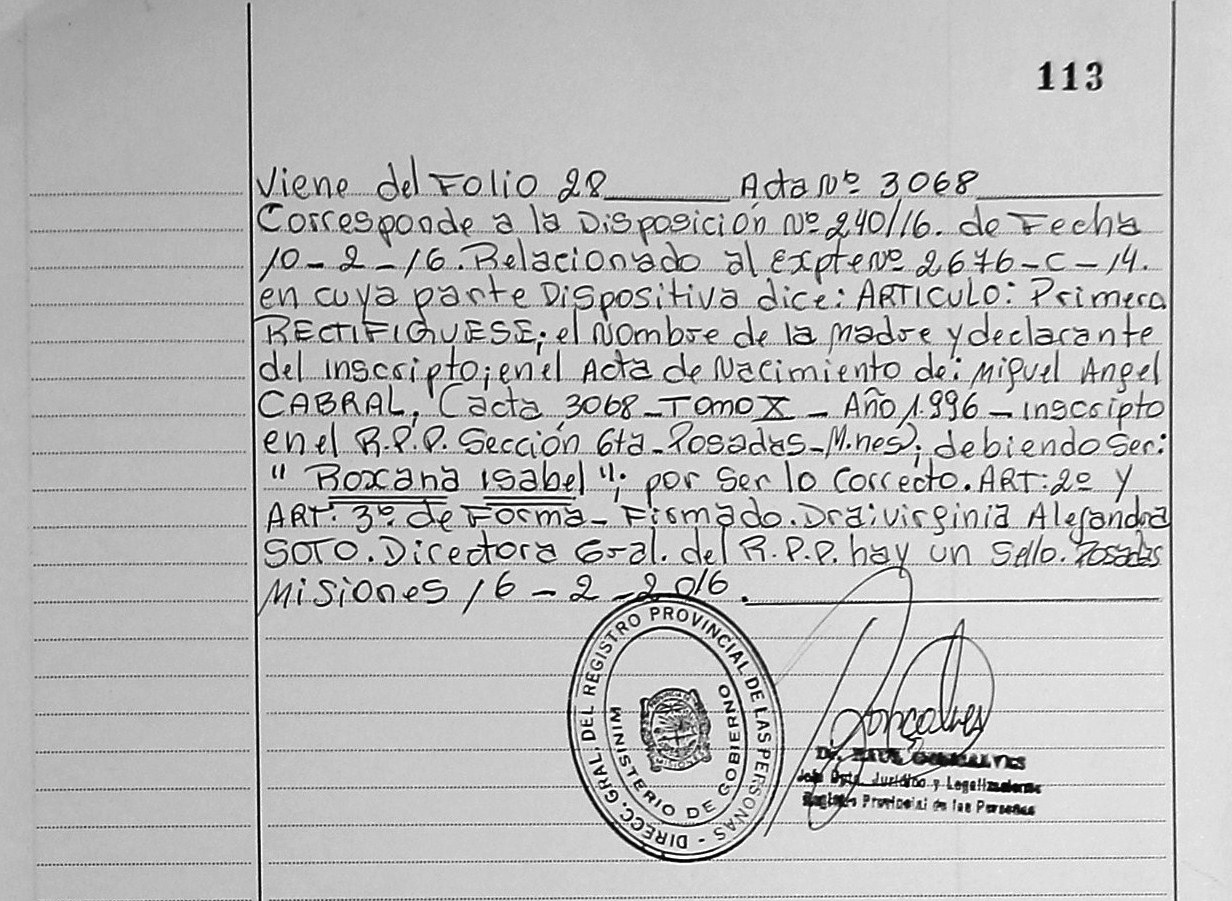 113
Viene del Folio 28 Acta Nº 3068
Corresponde a la Disposición Nº 240/16. de Fecha
10-2-16. Relacionado al Expte Nº 2676-C-14.
en cuya parte Dispositiva dice: ARTICULO: Primero
RECTIFIQUESE; el Nombre de la madre y declarante
del inscripto; en el Acta de Nacimiento de: Miguel Angel
CABRAL, (acta 3068-Tomo X - Año 1.996 - inscripto
en el R.P.P. Sección 6ta-Posadas-M.nes); debiendo Ser:
" Roxana isabel "; por Ser lo Correcto. ART: 2º Y
ART: 3º de Forma- Firmado. Dra: virginia Alejandra
SOTO. Directora Gral. del R.P.P. hay un Sello. Posadas
Misiones 16-2-2016.
DIRECC. GRAL. DEL REGISTRO PROVINCIAL DE LAS PERSONAS -
MINISTERIO DE GOBIERNO
Gonçalves
Dr. RAUL GONCALVES
Jefe Dpto. Jurídico y Legalizaciones
Registro Provincial de las Personas